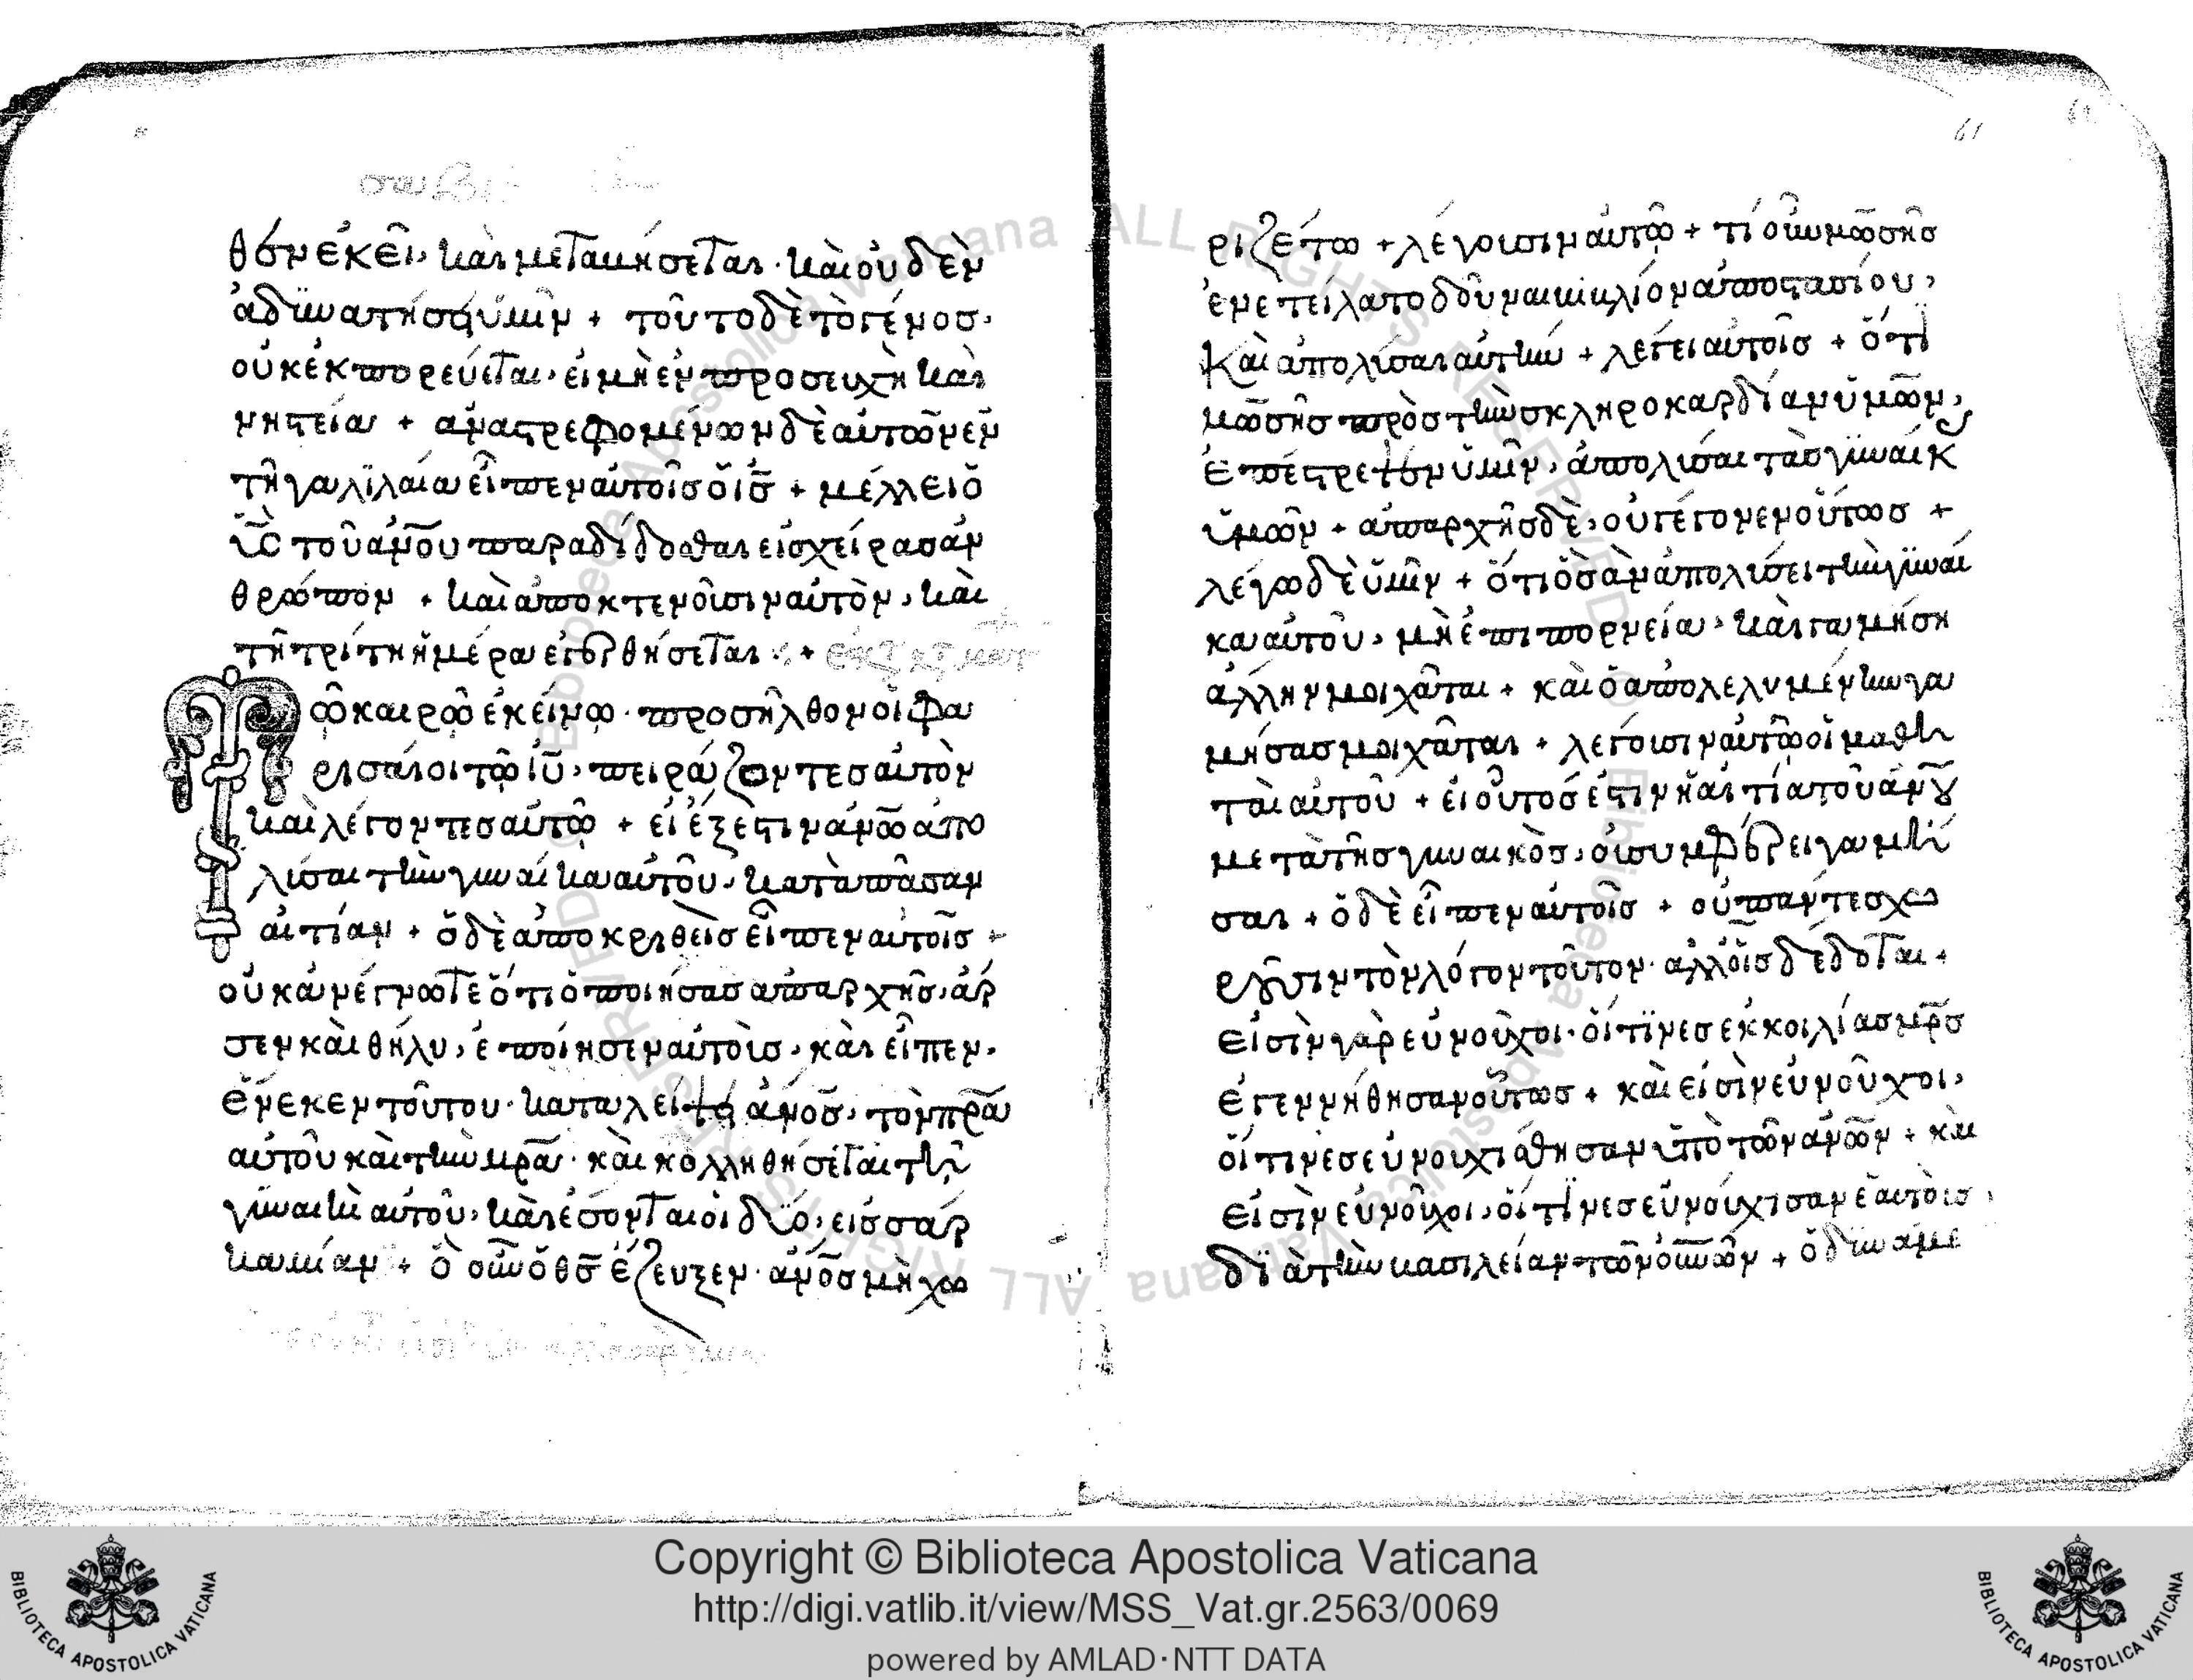 θεν ἐκεῖ, καὶ μεταβήσεται· καὶ οὐδὲν
ἀδϋνατήσει ὑμῖν + τοῦτο δὲ τὸ γένοσ·
οὐκ ἐκπορεύεται· εἰ μὴ ἐν προσευχῆ καὶ
νηστεία + ἀναστρεφομένων δὲ αὐτῶν ἐν
τῆ γαλϊλαία εἶπεν αὐτοῖσ ὁ ἰ̅σ̅ + μέλλει ὁ
υ̅ς̅ τοῦ ἀν̅ο̅υ παραδίδοσθαι εἰσ χεῖρασ ἀν
θρώπων + καὶ ἀποκτενοῦσιν αὐτὸν, καὶ
τῆ τρίτη ἡμέρα ἐγερθήσεται +
Τῶ καιρῶ ἐκείνω· προσῆλθον οἱ φα
ρισαῖοι τῶ ἰ̅υ̅, πειράζοντεσ αὐτὸν
καὶ λέγοντεσ αὐτῶ + εἰ ἔξεστιν ἀν̅ω̅ ἀπο
λῦσαι τὴν γυναῖκα αὐτοῦ, κατὰ πᾶσαν
αἰτίαν + ὁ δὲ ἀποκριθεὶσ εἶπεν αὐτοῖσ +
οὐκ ἀνέγνωτε ὅτι ὁ ποιήσασ ἀπαρχῆσ, ἄρ
σεν καὶ θῆλυ, ἐποίησεν αὐτοὺσ, καὶ εἶπεν·
ἕνεκεν τούτου· καταλείψει ἀν̅ο̅σ̅, τὸν π̅ρ̅α̅
αὐτοῦ καὶ τὴν μ̅ρ̅α̅· καὶ κολληθήσεται τῆ
γϋναικὶ αὐτοῦ, καὶ ἔσονται οἱ δϋο, εισ σάρ
κα μίαν + ὃ οὖν ὁ θ̅σ̅ ἔζευξεν· ἀν̅ο̅σ̅ μὴ χω
61
ριζέτω + λέγουσιν αὐτῶ + τί οὖν μωσῆσ
ἐνετείλατο δοῦναι βιβλίον ἀποστασίου,
καὶ ἀπολῦσαι αὐτὴν + λέγει αὐτοῖσ + ὅτϊ
μωσῆσ πρὸσ τὴν σκληροκαρδίαν ὑμῶν,
ἐπέστρεψεν ὑμῖν, ἀπολῦσαι τὰσ γϋναῖκ
ὑμῶν + ἀπαρχῆσ δὲ, οὐ γέγονεν οὕτωσ +
λέγω δὲ ὑμῖν + ὅτι ὃσ ἂν ἀπολύσει τὴν γϋναῖ
κα αὐτοῦ, μὴ ἐπι πορνεία, καὶ γαμήση
ἄλλην μοιχᾶται + καὶ ὁ ἀπολελυμένην γα
μήσασ μοιχᾶται + λέγουσιν αὐτῶ οἱ μαθη
ταὶ αὐτοῦ + εἰ οὕτοσ ἐστιν ἡ αἰτία τοῦ ἀν̅ου̅
μετὰ τῆσ γυναικὸσ, οὐ συμφέρει γαμῆ
σαι + ὁ δὲ εἶπεν αὐτοῖσ + οὐ παντεσ χω
ροῦσιν τὸν λόγον τοῦτον· ἀλλ οἷσ δέδοται +
εἰσὶν γὰρ εὐνοῦχοι· οἵτϊνεσ ἐκ κοιλίασ μ̅ρ̅σ̅
ἐγεννήθησαν οὕτωσ + καὶ εἰσὶν εὐνοῦχοι,
οἵτινεσ εὐνουχίσθησαν ὑπὸ τῶν ἀν̅ω̅ν + καὶ
εἰσὶν εὐνοῦχοι, οἵτϊνεσ εὐνούχισαν ἑαυτοὺσ,
δϊὰ τὴν βασιλείαν τῶν ο̅υ̅ν̅ῶν + ὁ δϋνάμε
Copyright © Biblioteca Apostolica Vaticana
http://digi.vatlib.it/view/MSS_Vat.gr.2563/0069
powered by AMLAD·NTT DATA
BIBLIOTECA APOSTOLICA VATICANA
BIBLIOTECA APOSTOLICA VATICANA